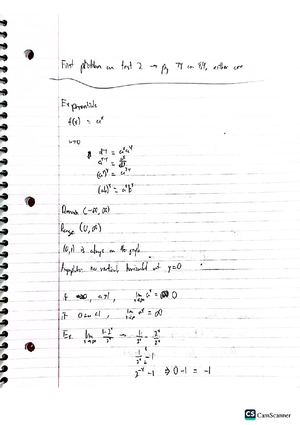 First problem on test 2 → pg 78 or 84, either one
Exponentials
f(x) = aˣ
a>0
aˣ⁺ʸ = aˣaʸ
aˣ⁻ʸ = aˣ/aʸ
(aˣ)ʸ = aˣʸ
(ab)ˣ = aˣbˣ
Domain (-∞, ∞)
Range (0, ∞)
(0,1) is always on the graph
Asymptotes no vertical, horizontal at y=0
if a>1, lim aˣ = 0
if 0<a<1, lim aˣ = ∞
Ex. lim (1-2ˣ)/2ˣ → 1/2ˣ - 2ˣ/2ˣ
1/2ˣ - 1
2⁻ˣ - 1 ⇒ 0-1 = -1
CS CamScanner